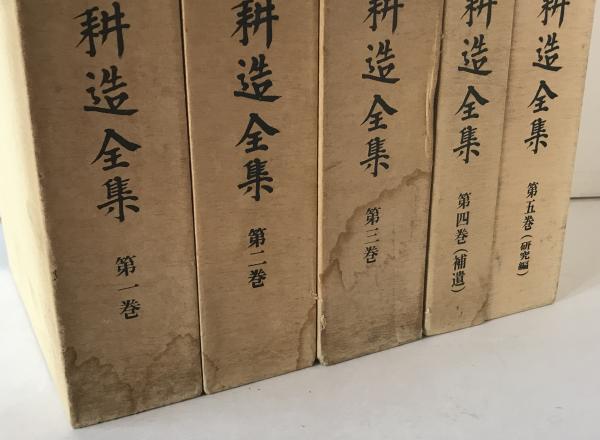 耕造全集 第一巻
耕造全集 第二巻
耕造全集 第三巻
耕造全集 第四巻(補遺)
耕造全集 第五巻(研究編)